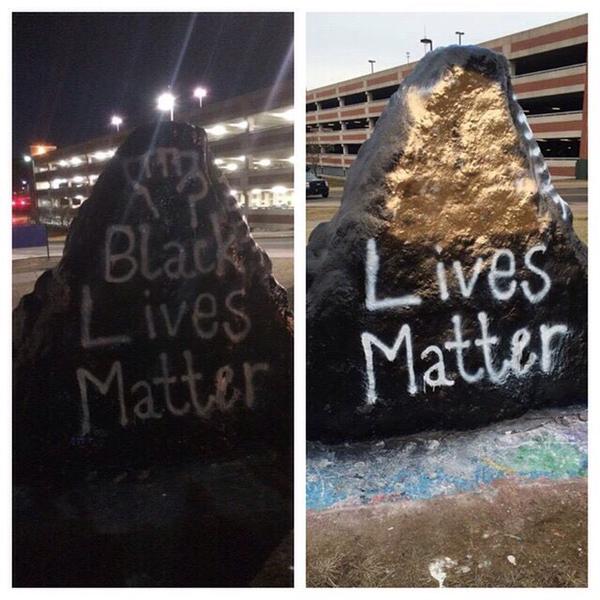 Black
Lives
Matter
Lives
Matter